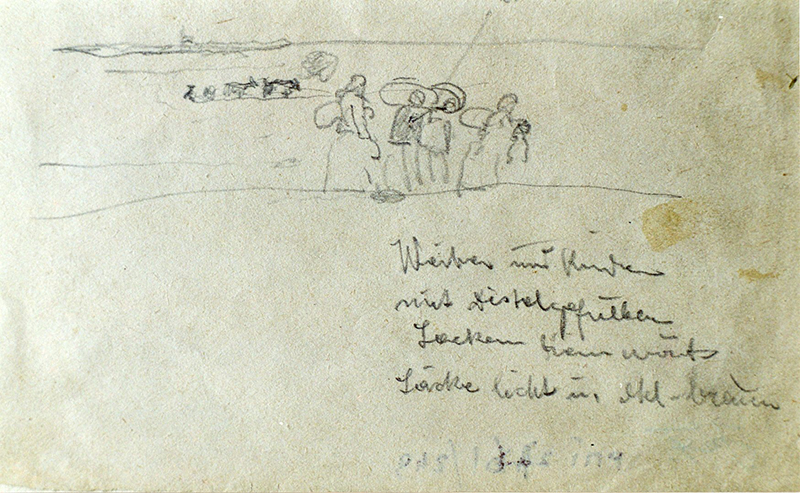 Weiber und Kinder
mit Distelgefüllten
Säcken heimwärts
Säcke licht u. dkl-braun